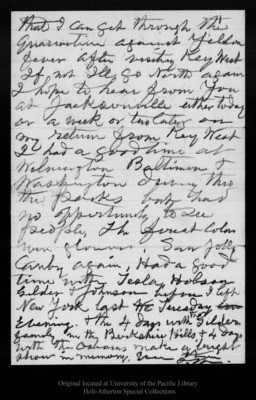 that I can get through the
Quarantine against Yellow
fever after visiting Key West
If not I'll go North again
I hope to hear from you
at Jacksonville either today
or a week or two later on
my return from Key West
I had a good time at
Wilmington Baltimore &
Washington driving thro
the parks but had
no opportunity to see
people, the forest colors
were glorious. Saw jolly
Canby again, Had a good
time with Tesla, Hobson
Gilder & Johnson before I left
New York last Tuesday
Evening. & the 4 days with Gilder
family in the Berkshire Hills & 4 days
with the Osborns make a bright
show in memory. Ever
Original located at University of the Pacific Library
Holt-Atherton Special Collections